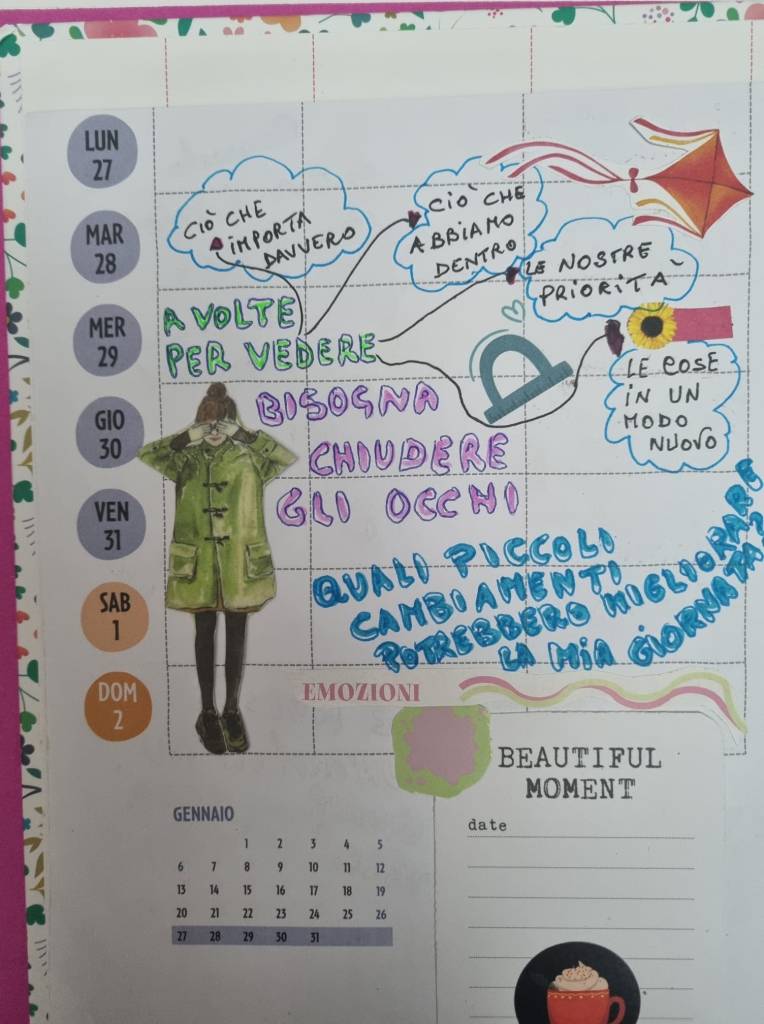 LUN
27
MAR
28
MER
29
GIO
30
VEN
31
SAB
1
DOM
2
CIÒ CHE
IMPORTA
DAVVERO
CIÒ CHE
ABBIAMO
DENTRO
LE NOSTRE
PRIORITÀ
LE COSE
IN UN
MODO
NUOVO
A VOLTE
PER VEDERE
BISOGNA
CHIUDERE
GLI OCCHI
QUALI PICCOLI
CAMBIAMENTI
POTREBBERO MIGLIORARE
LA MIA GIORNATA?
EMOZIONI
BEAUTIFUL
MOMENT
date
GENNAIO
1 2 3 4 5
6 7 8 9 10 11 12
13 14 15 16 17 18 19
20 21 22 23 24 25 26
27 28 29 30 31